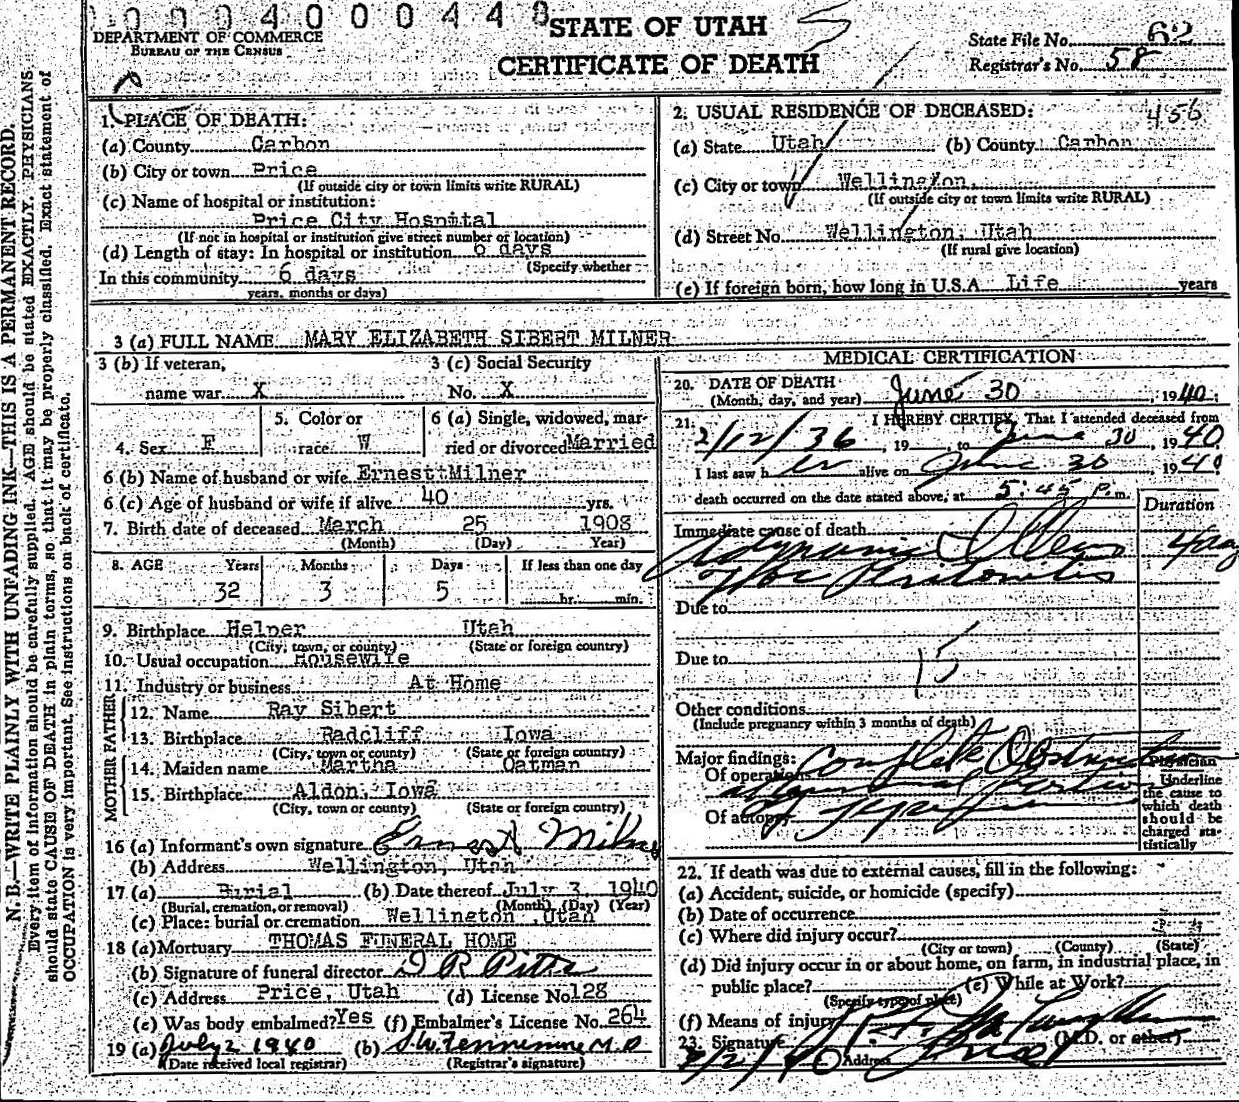 0004000448
DEPARTMENT OF COMMERCE
BUREAU OF THE CENSUS
STATE OF UTAH
CERTIFICATE OF DEATH
State File No. 62
Registrar's No. 58
1. PLACE OF DEATH:
(a) County Carbon
(b) City or town Price
(If outside city or town limits write RURAL)
(c) Name of hospital or institution:
Price City Hospital
(If not in hospital or institution give street number or location)
(d) Length of stay: In hospital or institution 6 days
(Specify whether
In this community 6 days
years, months or days)
2. USUAL RESIDENCE OF DECEASED: 456
(a) State Utah (b) County Carbon
(c) City or town Wellington,
(If outside city or town limits write RURAL)
(d) Street No. Wellington, Utah
(If rural give location)
(e) If foreign born, how long in U.S.A. Life years
3 (a) FULL NAME MARY ELIZABETH SIBERT MILNER
3 (b) If veteran, 3 (c) Social Security
name war X No. X
4. Sex F 5. Color or race W 6 (a) Single, widowed, married or divorced Married
6 (b) Name of husband or wife Ernest Milner
6 (c) Age of husband or wife if alive 40 yrs.
7. Birth date of deceased March 25 1908
(Month) (Day) Year)
8. AGE Years Months Days If less than one day
32 3 5 hr. min.
9. Birthplace Helper Utah
(City, town, or county) (State or foreign country)
10. Usual occupation Housewife
11. Industry or business At Home
FATHER
12. Name Ray Sibert
13. Birthplace Radcliff Iowa
(City, town or county) (State or foreign country)
MOTHER
14. Maiden name Martha Oatman
15. Birthplace Aldon, Iowa
(City, town or county) (State or foreign country)
16 (a) Informant's own signature Ernest Milner
(b) Address Wellington, Utah
17 (a) Burial (b) Date thereof July 3 1940
(Burial, cremation, or removal) (Month) (Day) (Year)
(c) Place: burial or cremation Wellington, Utah
18 (a) Mortuary THOMAS FUNERAL HOME
(b) Signature of funeral director
(c) Address Price, Utah (d) License No. 128
(e) Was body embalmed? Yes (f) Embalmer's License No. 264
19 (a) July 2 1940 (b) M.D
(Date received local registrar) (Registrar's signature)
MEDICAL CERTIFICATION
20. DATE OF DEATH
(Month, day, and year) June 30, 1940.
21. I HEREBY CERTIFY, That I attended deceased from
2/12/36, 19 to June 30, 1940
I last saw her alive on June 30 1940
death occurred on the date stated above, at 5:45 P.m.
Duration
Immediate cause of death
Adynamic Illeus
Peritonitis
Due to
Due to
15
Other conditions
(Include pregnancy within 3 months of death)
Major findings:
Of operations Complete Obstruction
Of autopsy
Physician
Underline
the cause to
which death
should be
charged sta-
tistically
22. If death was due to external causes, fill in the following:
(a) Accident, suicide, or homicide (specify)
(b) Date of occurrence
(c) Where did injury occur?
(City or town) (County) (State)
(d) Did injury occur in or about home, on farm, in industrial place, in
public place? (e) While at Work?
(Specify type of place)
(f) Means of injury
23. Signature (M.D. or other)
Address Price
N. B.—WRITE PLAINLY WITH UNFADING INK—THIS IS A PERMANENT RECORD.
Every item of information should be carefully supplied. AGE should be stated EXACTLY. PHYSICIANS
should state CAUSE OF DEATH in plain terms, so that it may be properly classified. Exact statement of
OCCUPATION is very important. See instructions on back of certificate.